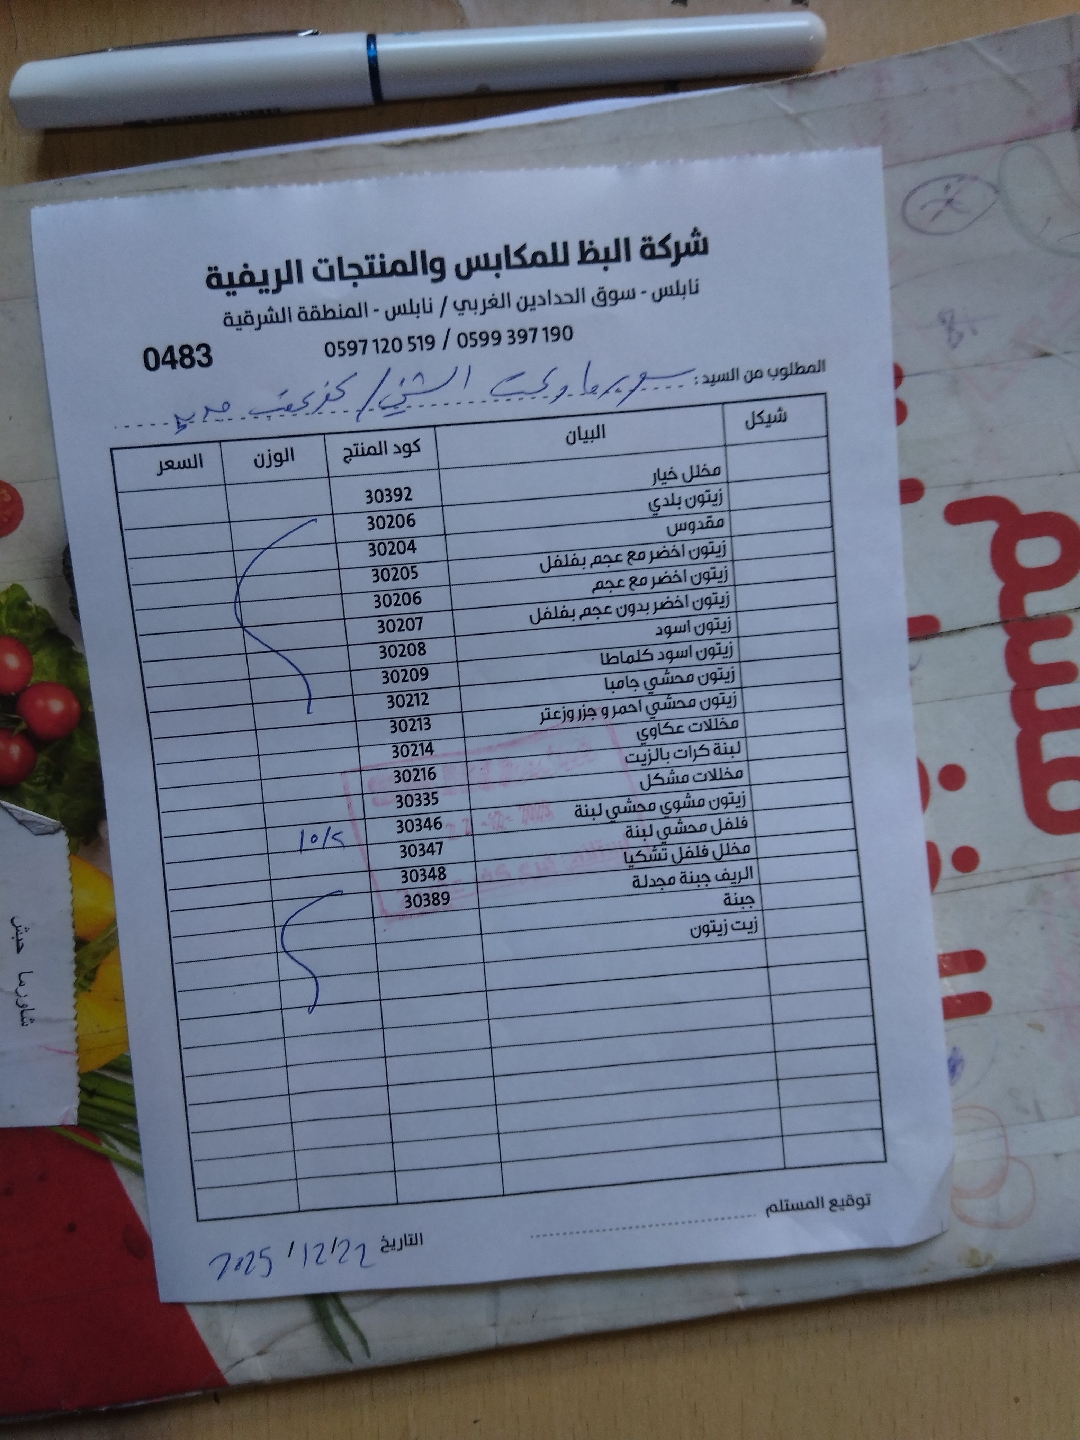 شركة البظ للمكابس والمنتجات الريفية
نابلس - سوق الحدادين الغربي / نابلس - المنطقة الشرقية
0597 120 519 / 0599 397 190
0483
المطلوب من السيد: سوبرماركت
شيكل البيان كود المنتج الوزن السعر
مخلل خيار 30392
زيتون بلدي 30206
مقدوس 30204
زيتون اخضر مع عجم بفلفل 30205
زيتون اخضر مع عجم 30206
زيتون اخضر بدون عجم بفلفل 30207
زيتون اسود 30208
زيتون اسود كلماطا 30209
زيتون محشي جامبا 30212
زيتون محشي احمر و جزر وزعتر 30213
مخللات عكاوي 30214
لبنة كرات بالزيت 30216
مخللات مشكل 30335
زيتون مشوي محشي لبنة 30346
فلفل محشي لبنة 30347
مخلل فلفل تشكيا 30348
الريف جبنة مجدلة 30389
جبنة
زيت زيتون
توقيع المستلم
التاريخ 2025/12/22
شاورما حبش